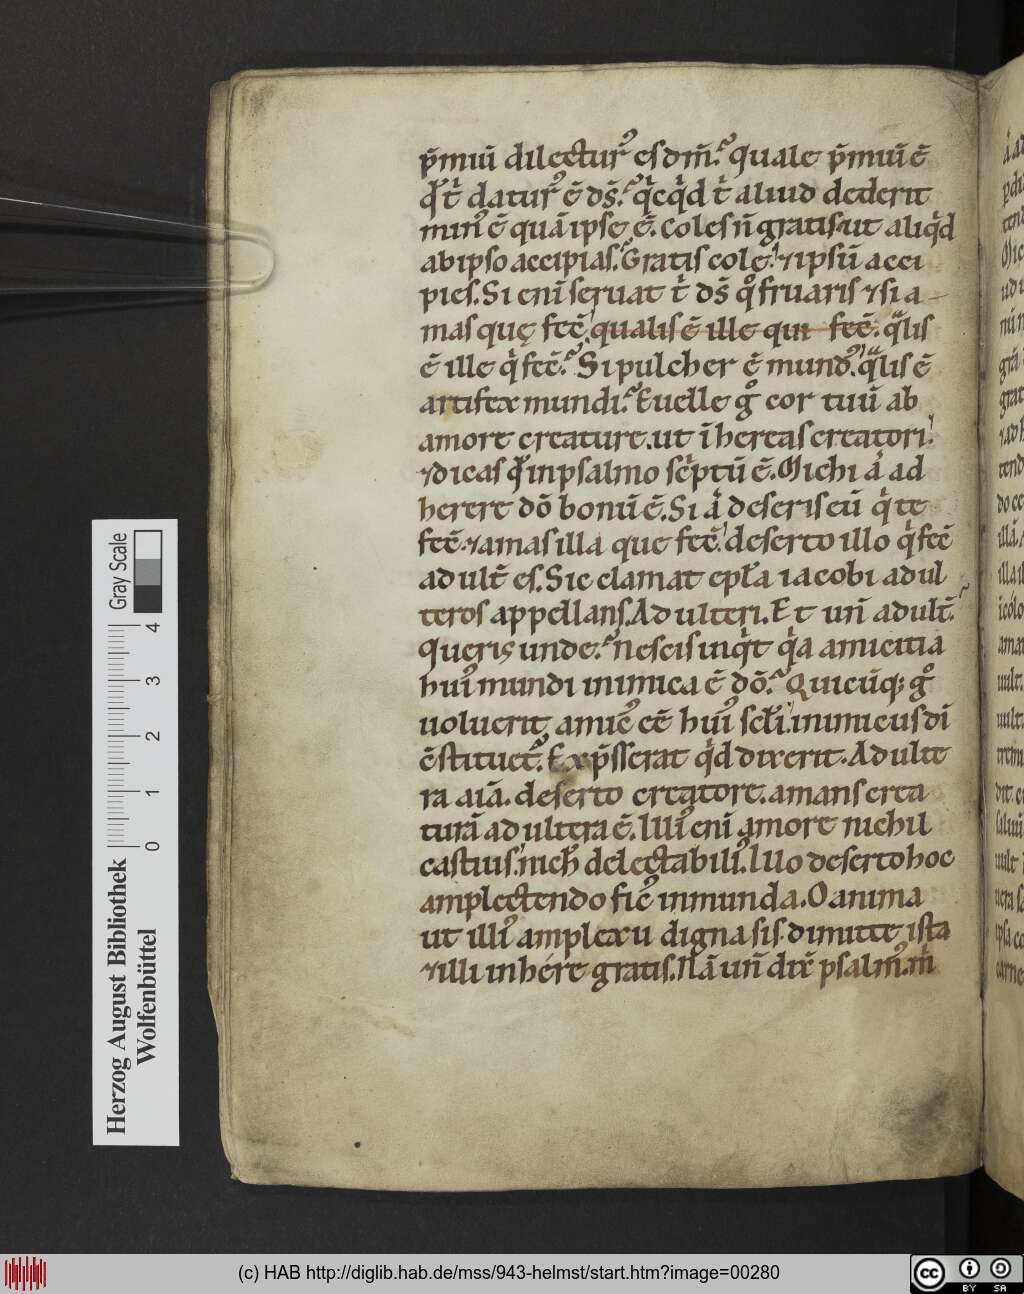 p̄miū dilecturꝰ es dm̄. quale p̄miū ē
qͩ t̄ daturꝰ ē ds̄. qͥcqͥd t̄ aliud dederit
minꝰ ē quā ipse ē. Coles n̄ gratis ut aliqͥd
ab ipso accipias. Gratis cole. ⁊ ipsū acci
pies. Si eni seruat t̄ ds̄ qͦ fruaris ⁊ si a
mas quę fec̄. qualis ē ille qui fec̄. qͣlis
ē ille qͥ fec̄. Si pulcher ē mundꝰ. qͣlis ē
artifex mundi. Euelle gͦ cor tuū ab
amore creature. ut īhereas creatori.
⁊ dicas qͩ in psalmo scͥptū ē. Michi aͥ ad
herere dō bonū ē. Si aͥ deseris eū qͥ te
fec̄. ⁊ amas illa que fec̄. deserto illo qͥ fec̄
adult̄ es. Sic clamat epl̄a iacobi adul
teros appellans. Adulteri. Et un̄ adult̄.
Queris unde. Nescis inqͥt qͥa amicitia
huiꝰ mundi inimica ē dō. Quicūq; gͦ
uoluerit amicꝰ eē huiꝰ scl̄i. inimicus di
c̄stituet͛. Exp̄sserat qͥd dixerit. Adulte
ra aīa. deserto creatore. amans crea
turā adultera ē. Illiꝰ eni amore nichil
castius. nich̄ delectabiliꝰ. Illo deserto hoc
amplectendo fic̄ inmunda. O anima
ut illiꝰ amplexu digna sis dimitte ista
⁊ illi inhere gratis. Nā un̄ dix̄ psalmꝰ. m̄
Herzog August Bibliothek
Wolfenbüttel
Gray Scale
0 1 2 3 4
(c) HAB http://diglib.hab.de/mss/943-helmst/start.htm?image=00280
cc BY SA